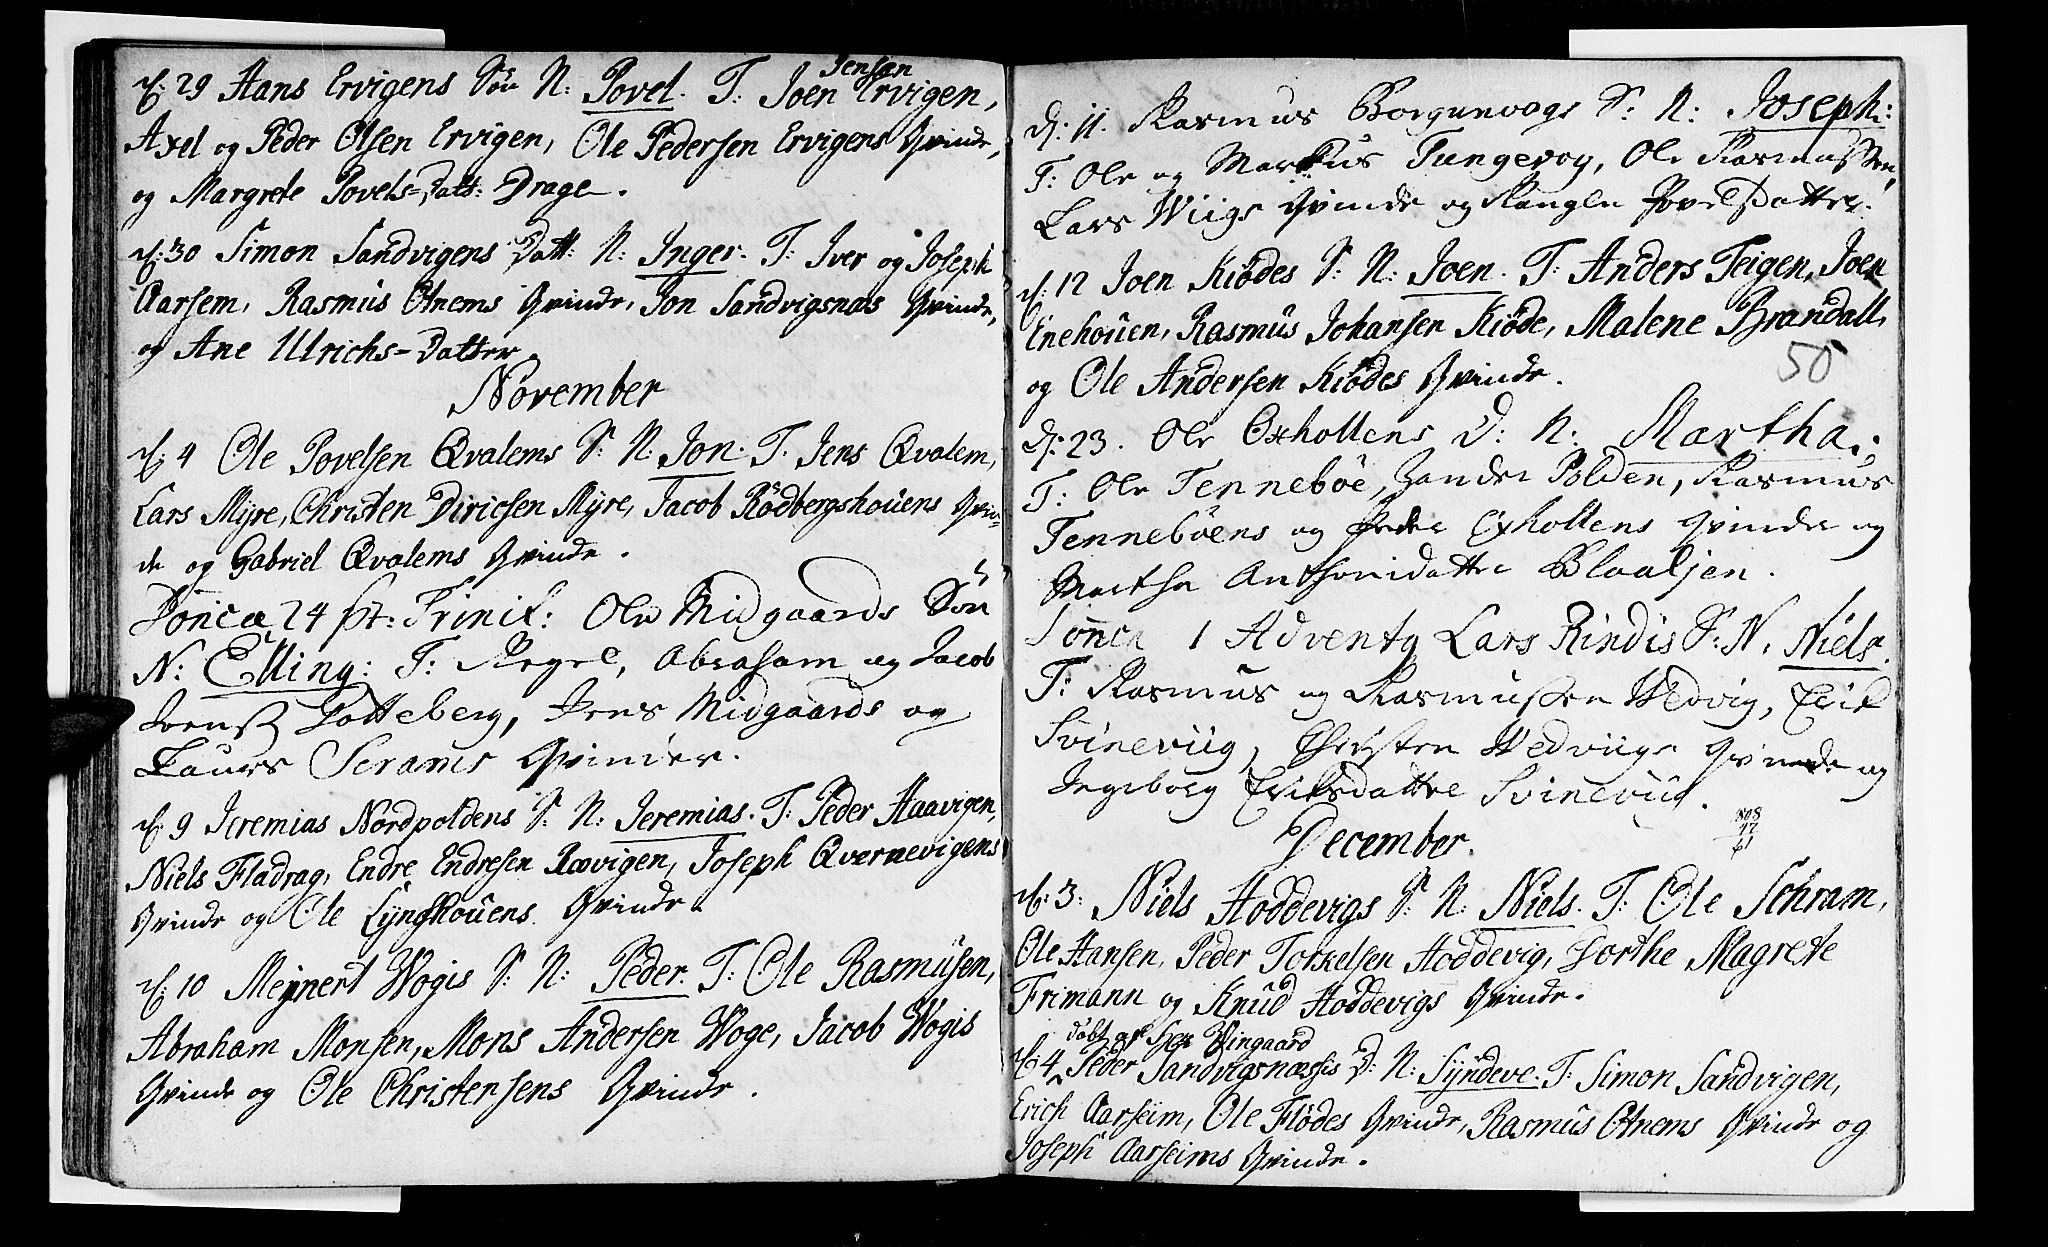 d: 29 Hans Ervigens Søn N: Povel. T: Joen Jensen Ervigen,
Axel og Peder Olsen Ervigen, Ole Pedersen Ervigens Qvinde,
og Margrete Povels=Datt: Drage.
d: 30 Simon Sandvigens Datt: N: Inger. T: Iver og Joseph
Aarsem, Rasmus Otnems Qvinde, Jon Sandvignæs Qvinde,
og Ane Ulrichs=Datter.
November
d: 4 Ole Povelsen Qvalems S: N: Jon. T. Jens Qvalem,
Lars Myre, Christen Diricsen Myre, Jacob Rødbergshouens Qvin=
de og Gabriel Qvalems Qvinde.
Donica 24 pt: Trinit: Ole Midgaards Søn
N: Elling: T: Abraham og Jacob
Totteberg, Jens Midgaards og
Laurs Scrams Qvinder.
d: 9 Jeremias Nordpoldens S: N: Jeremias. T. Peder Haavigen,
Niels Fladrag, Endre Endresen Rævigen, Joseph Qvernevigens
Qvinde og Ole Lynghouens Qvinde.
d: 10 Meynert Wogis S: N: Peder. T: Ole Rasmusen,
Abraham Monsen, Mons Andersen Woge, Jacob Wogis
Qvinde og Ole Christensens Qvinde.
d: 11. Rasmus Borgunvogs S: N: Joseph:
T: Ole og Markus Tungevog, Ole Rasmussen,
Lars Wiigs Qvinde og Povelsdatter.
d: 12 Joen Kiødes S: N: Joen. T: Anders Teigen, Joen
Enehouen, Rasmus Johansen Kiøde, Malene Brandall,
50
og Ole Andersen Kiødes Qvinde.
d: 23. Ole Oxhollens D: N: Martha:
T: Ole Tennebøe, Zander Polden, Rasmus
Tennebøens og Peder Oxhollens Qvinder og
Martha Anthonidatter Blaaljen.
1 Advent Lars Rindis S: N. Niels.
T: Rasmus og Rasmussen Wedvig, Erik
Svineviig, Christen Wedviigs Qvinde og
Ingeborg Eriksdatter Svineviig.
December.
d: 3. Niels Hoddevigs S: N: Niels. T: Ole Schram,
Ole Hansen, Peder Torkelsen Hoddevig, Dorthe Magrete
Frimann og Knud Hoddevigs Qvinde.
døbt af Hr Wingaard
d: 4 Peder Sandvigsnæssis D: N: Syndeve. T: Simon Sandvigen,
Erich Aarseim, Ole Flødes Qvinde, Rasmus Otnems Qvinde og
Joseph Aarseims Qvinde.